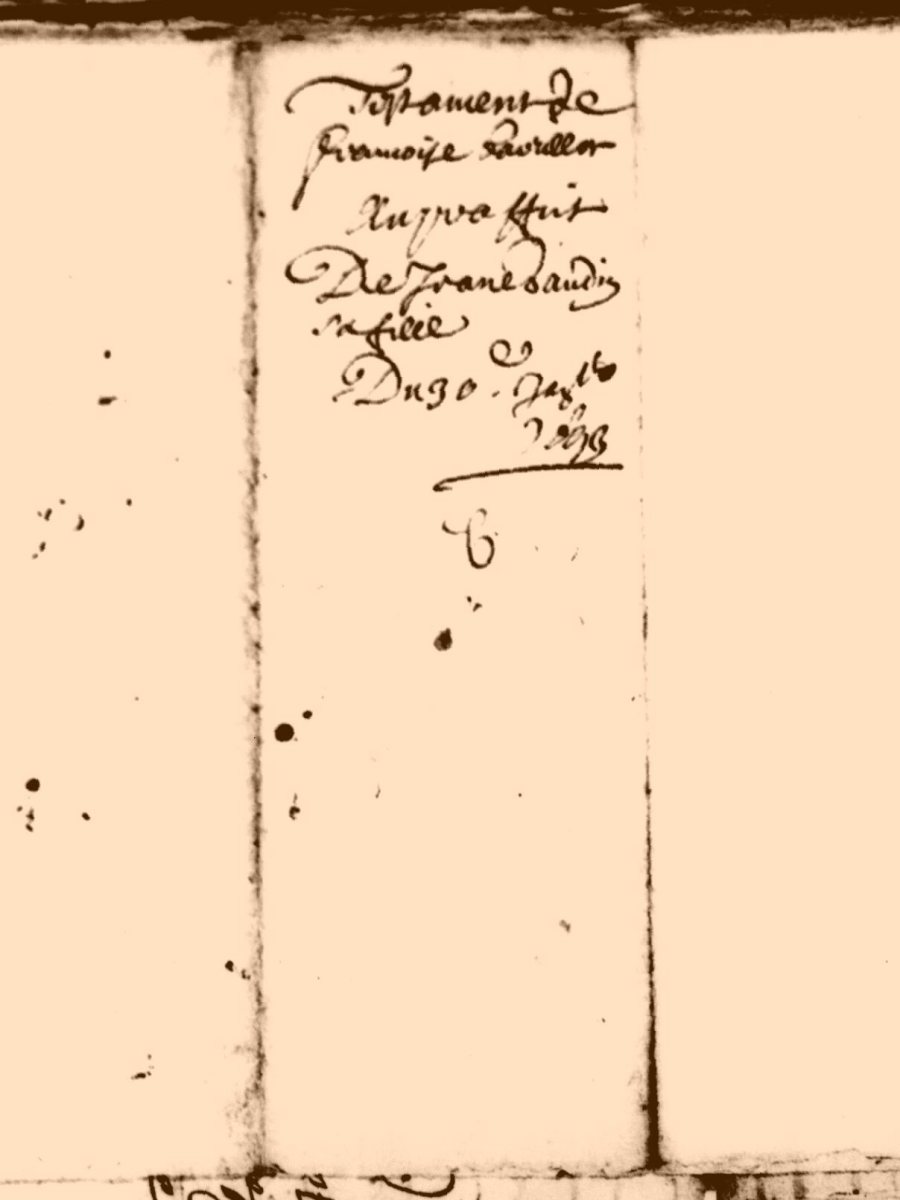 Testament de
francoise Savrellor
Au proffist
De Jeane baudin
sa fille
Du 30e
1693